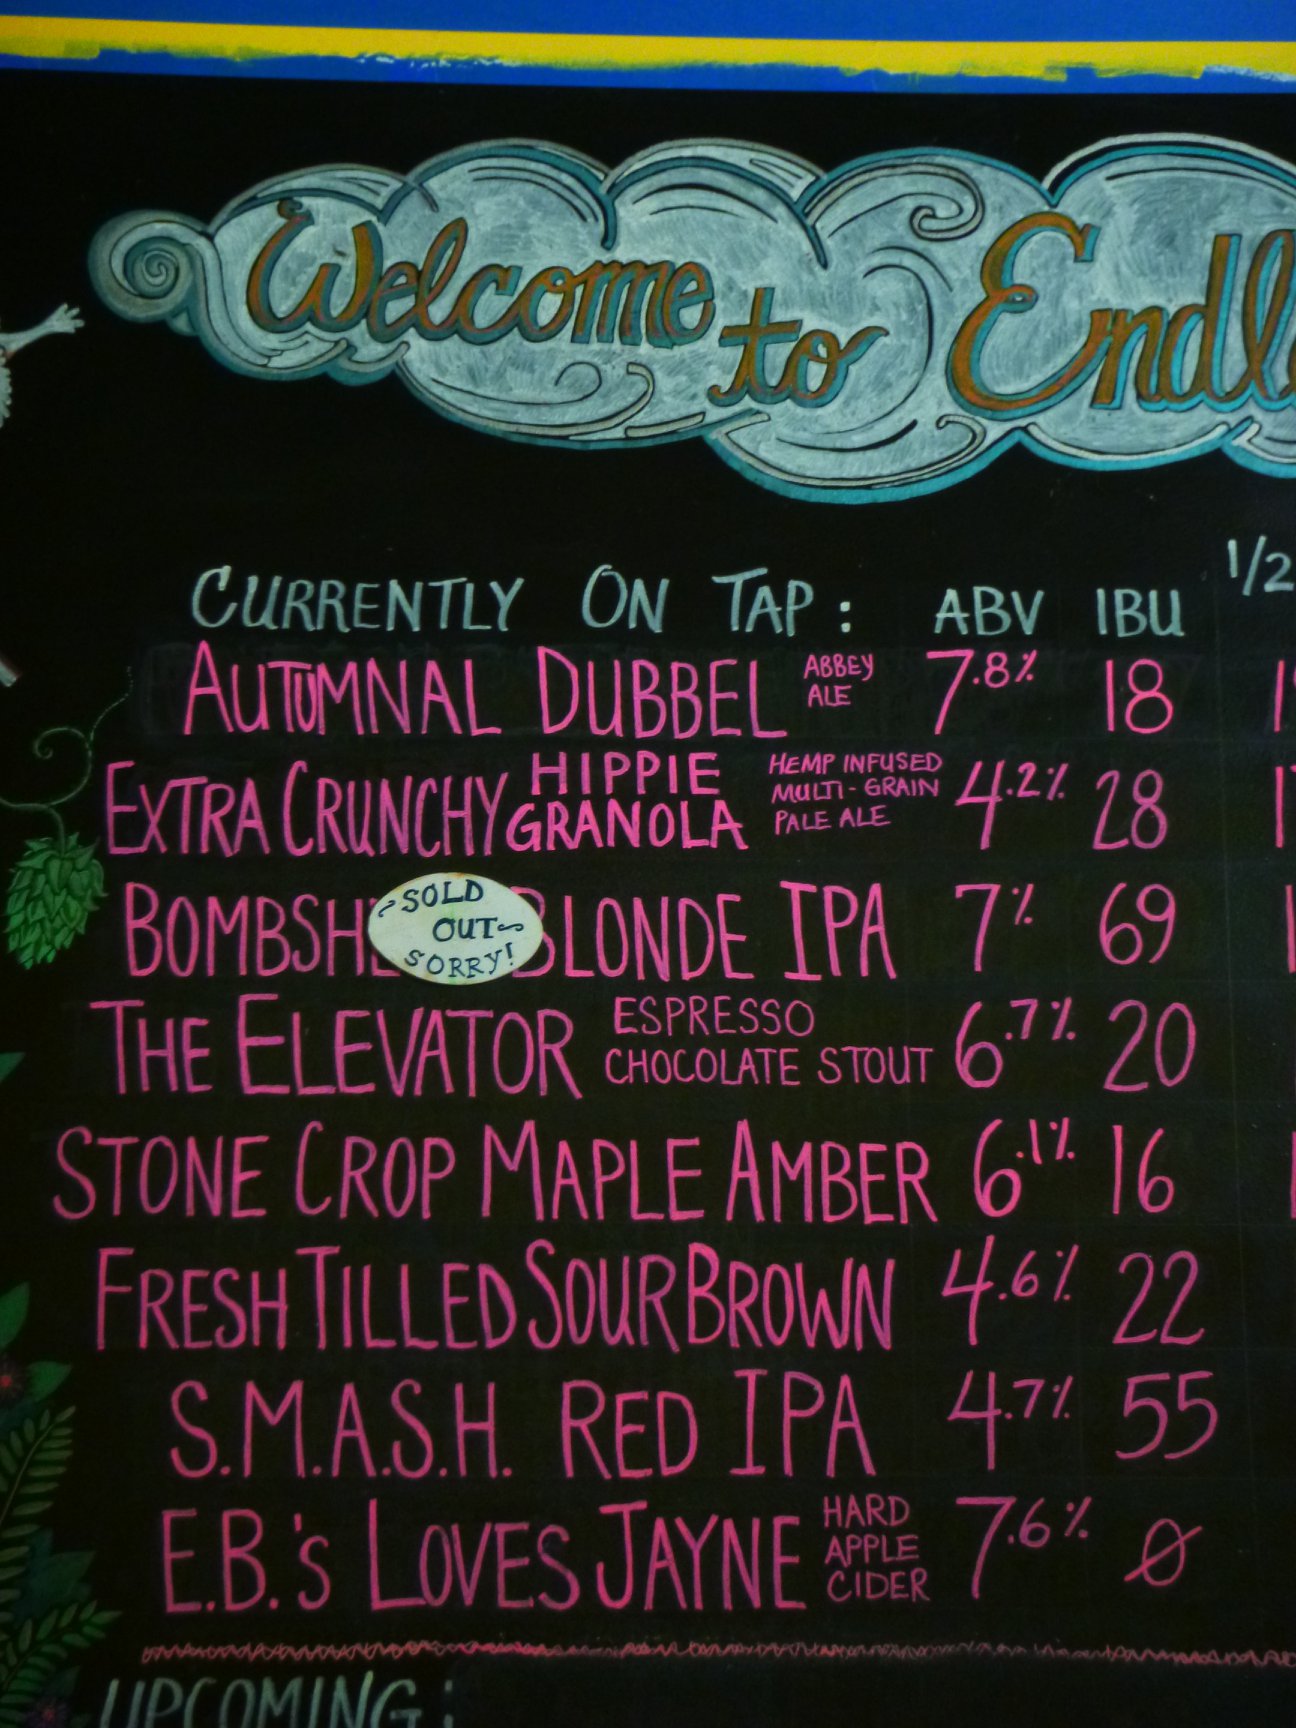 Welcome to Endl
CURRENTLY ON TAP: ABV IBU 1/2
AUTUMNAL DUBBEL ABBEY ALE 7.8% 18
EXTRA CRUNCHY HIPPIE GRANOLA HEMP INFUSED MULTI-GRAIN PALE ALE 4.2% 28
BOMBSH BLONDE IPA 7% 69
SOLD
OUT
SORRY!
THE ELEVATOR ESPRESSO CHOCOLATE STOUT 6.7% 20
STONE CROP MAPLE AMBER 6.1% 16
FRESH TILLED SOUR BROWN 4.6% 22
S.M.A.S.H. RED IPA 4.7% 55
E.B.'S LOVES JAYNE HARD APPLE CIDER 7.6% 0
UPCOMING: